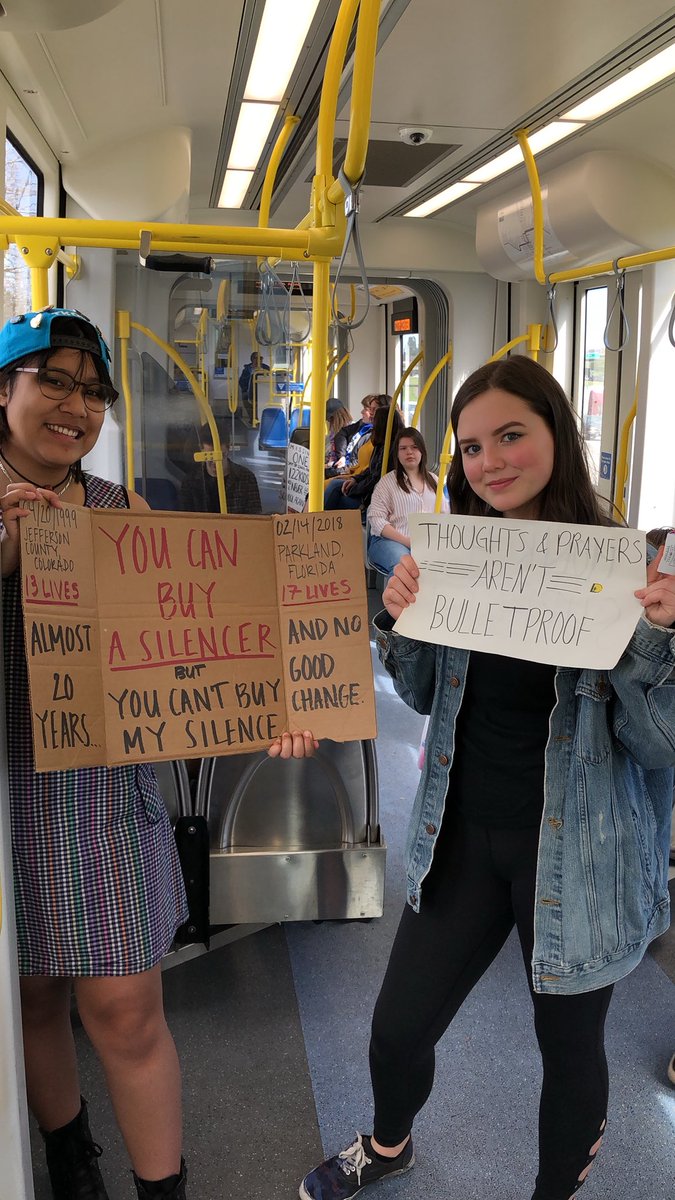 04/20/1999
JEFFERSON
COUNTY,
COLORADO
13 LIVES
ALMOST
20
YEARS...
YOU CAN
BUY
A SILENCER
BUT
YOU CAN'T BUY
MY SILENCE
02/14/2018
PARKLAND,
FLORIDA
17 LIVES
AND NO
GOOD
CHANGE.
THOUGHTS & PRAYERS
AREN'T
BULLETPROOF
ONE